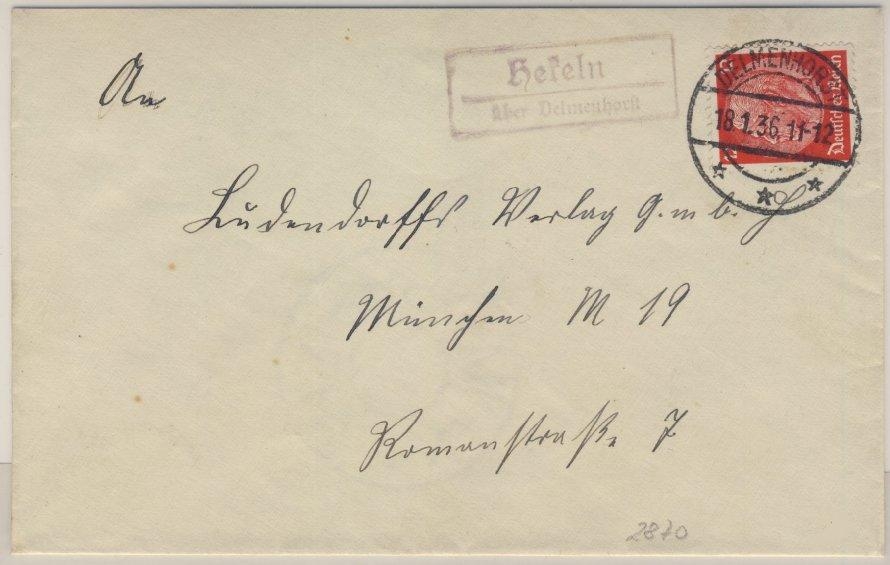 An
Hekeln
über Delmenhorst
DELMENHORST
18.1.36. 11-12
Deutsches Reich
Ludendorffs Verlag G.m.b.H
München M 19
Romanstraße 7
2870